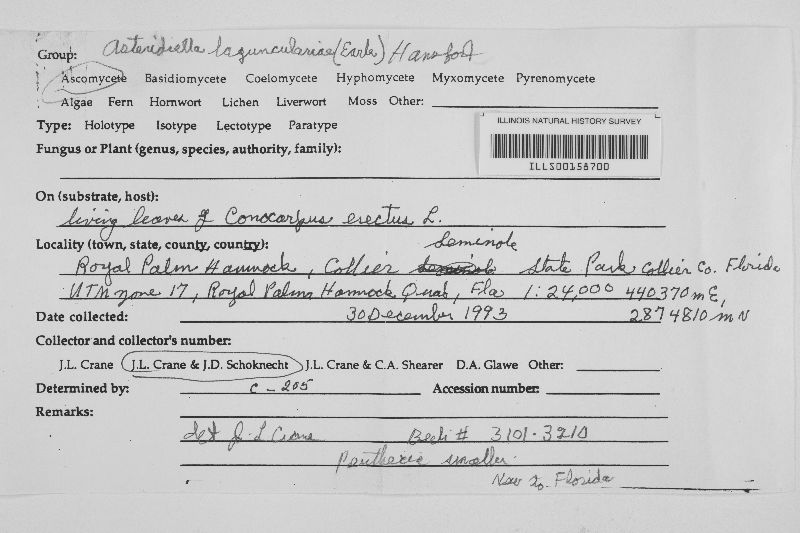 Group: Asteridiella lagunculariae (Earle) Hansford
Ascomycete Basidiomycete Coelomycete Hyphomycete Myxomycete Pyrenomycete
Algae Fern Hornwort Lichen Liverwort Moss Other:
Type: Holotype Isotype Lectotype Paratype
ILLINOIS NATURAL HISTORY SURVEY
ILLS00158700
Fungus or Plant (genus, species, authority, family):
On (substrate, host):
living leaves of Conocarpus erectus L.
Seminole
Locality (town, state, county, country):
Royal Palm Hammock, Collier Seminole State Park Collier Co. Florida
UTM zone 17, Royal Palm Hammock Quad, Fla 1:24,000 440370 mE,
Date collected: 30 December 1993 2874810 m N
Collector and collector's number:
J.L. Crane J.L. Crane & J.D. Schoknecht J.L. Crane & C.A. Shearer D.A. Glawe Other:
Determined by: C-205 Accession number:
Remarks:
det J. L Crane Beeli # 3101.3210
Perithecia smaller.
New to Florida